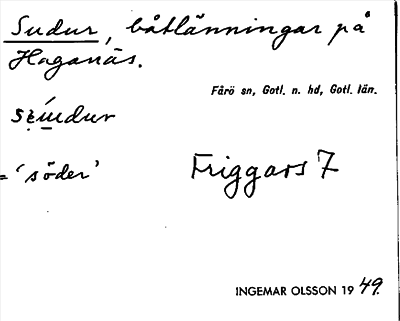 Sudur, båtlänningar på
Haganäs.
Fårö sn, Gotl. n. hd, Gotl. län.
= 'söder'
Friggars 7
INGEMAR OLSSON 19 49.